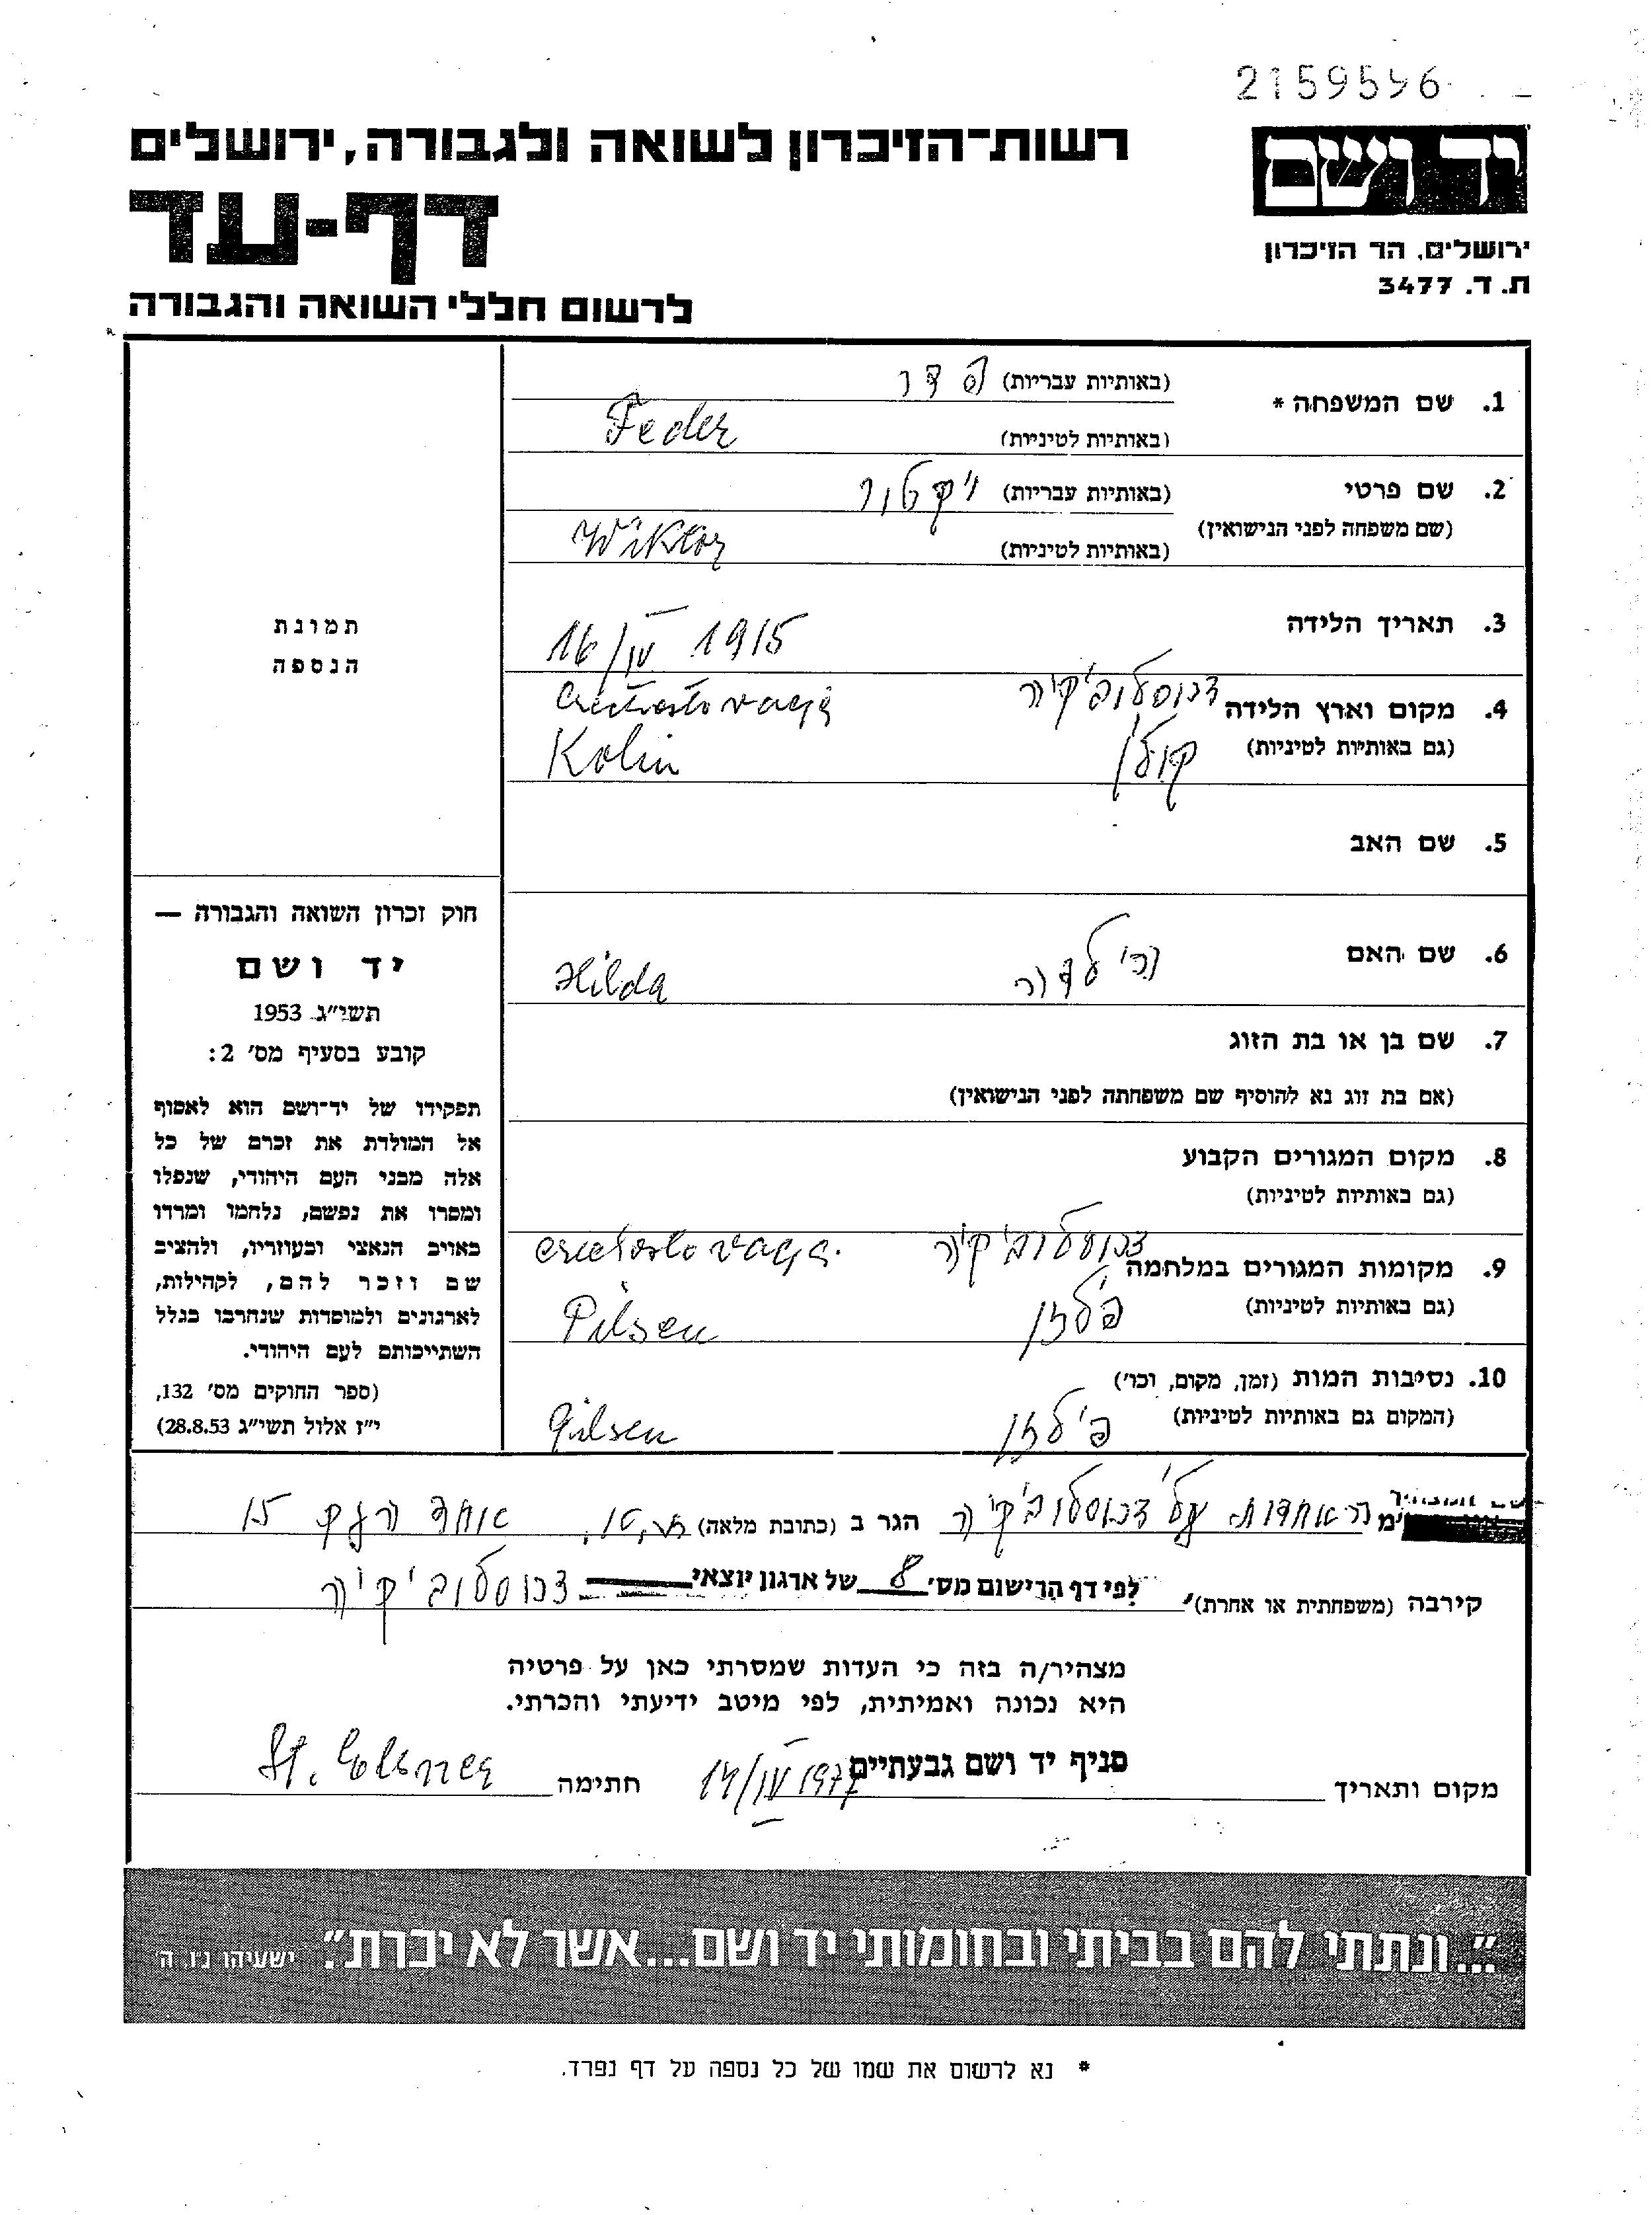 2159596
רשות־הזיכרון לשואה ולגבורה, ירושלים
יד ושם
דף-עד
ירושלים, הר הזיכרון
ת. ד. 3477
לרשום חללי השואה והגבורה
1. שם המשפחה *
(באותיות עבריות) פדר
(באותיות לטיניות) Feder
2. שם פרטי
(שם משפחה לפני הנישואין)
(באותיות עבריות) ויקטור
(באותיות לטיניות) Wiktor
3. תאריך הלידה 16/IV 1915
תמונת
הנספה
4. מקום וארץ הלידה צכוסלוביקיה
(גם באותיות לטיניות) קולין Kolin
5. שם האב
6. שם האם הילדה Hilda
7. שם בן או בת הזוג
(אם בת זוג נא להוסיף שם משפחתה לפני הנישואין)
8. מקום המגורים הקבוע
(גם באותיות לטיניות)
9. מקומות המגורים במלחמה צכוסלוביקיה
(גם באותיות לטיניות) פילזן Pilsen
10. נסיבות המות (זמן, מקום, וכו')
(המקום גם באותיות לטיניות) פילזן Pilsen
חוק זכרון השואה והגבורה —
יד ושם
תשי"ג 1953
קובע בסעיף מס' 2:
תפקידו של יד־ושם הוא לאסוף
אל המולדת את זכרם של כל
אלה מבני העם היהודי, שנפלו
ומסרו את נפשם, נלחמו ומרדו
באויב הנאצי ובעוזריו, ולהציב
שם וזכר להם, לקהילות,
לארגונים ולמוסדות שנחרבו בגלל
השתייכותם לעם היהודי.
(ספר החוקים מס' 132,
י"ז אלול תשי"ג 28.8.53)
צכוסלוביקיה הגר ב (כתובת מלאה) 15
קירבה (משפחתית או אחרת) לפי דף הרישום מס' 8 של ארגון יוצאי צכוסלוביקיה
מצהיר/ה בזה כי העדות שמסרתי כאן על פרטיה
היא נכונה ואמיתית, לפי מיטב ידיעתי והכרתי.
מקום ותאריך סניף יד ושם גבעתיים 14/IV 1977 חתימה
"...ונתתי להם בביתי ובחומותי יד ושם...אשר לא יכרת". ישעיהו נ"ו, ה'
* נא לרשום את שמו של כל נספה על דף נפרד.